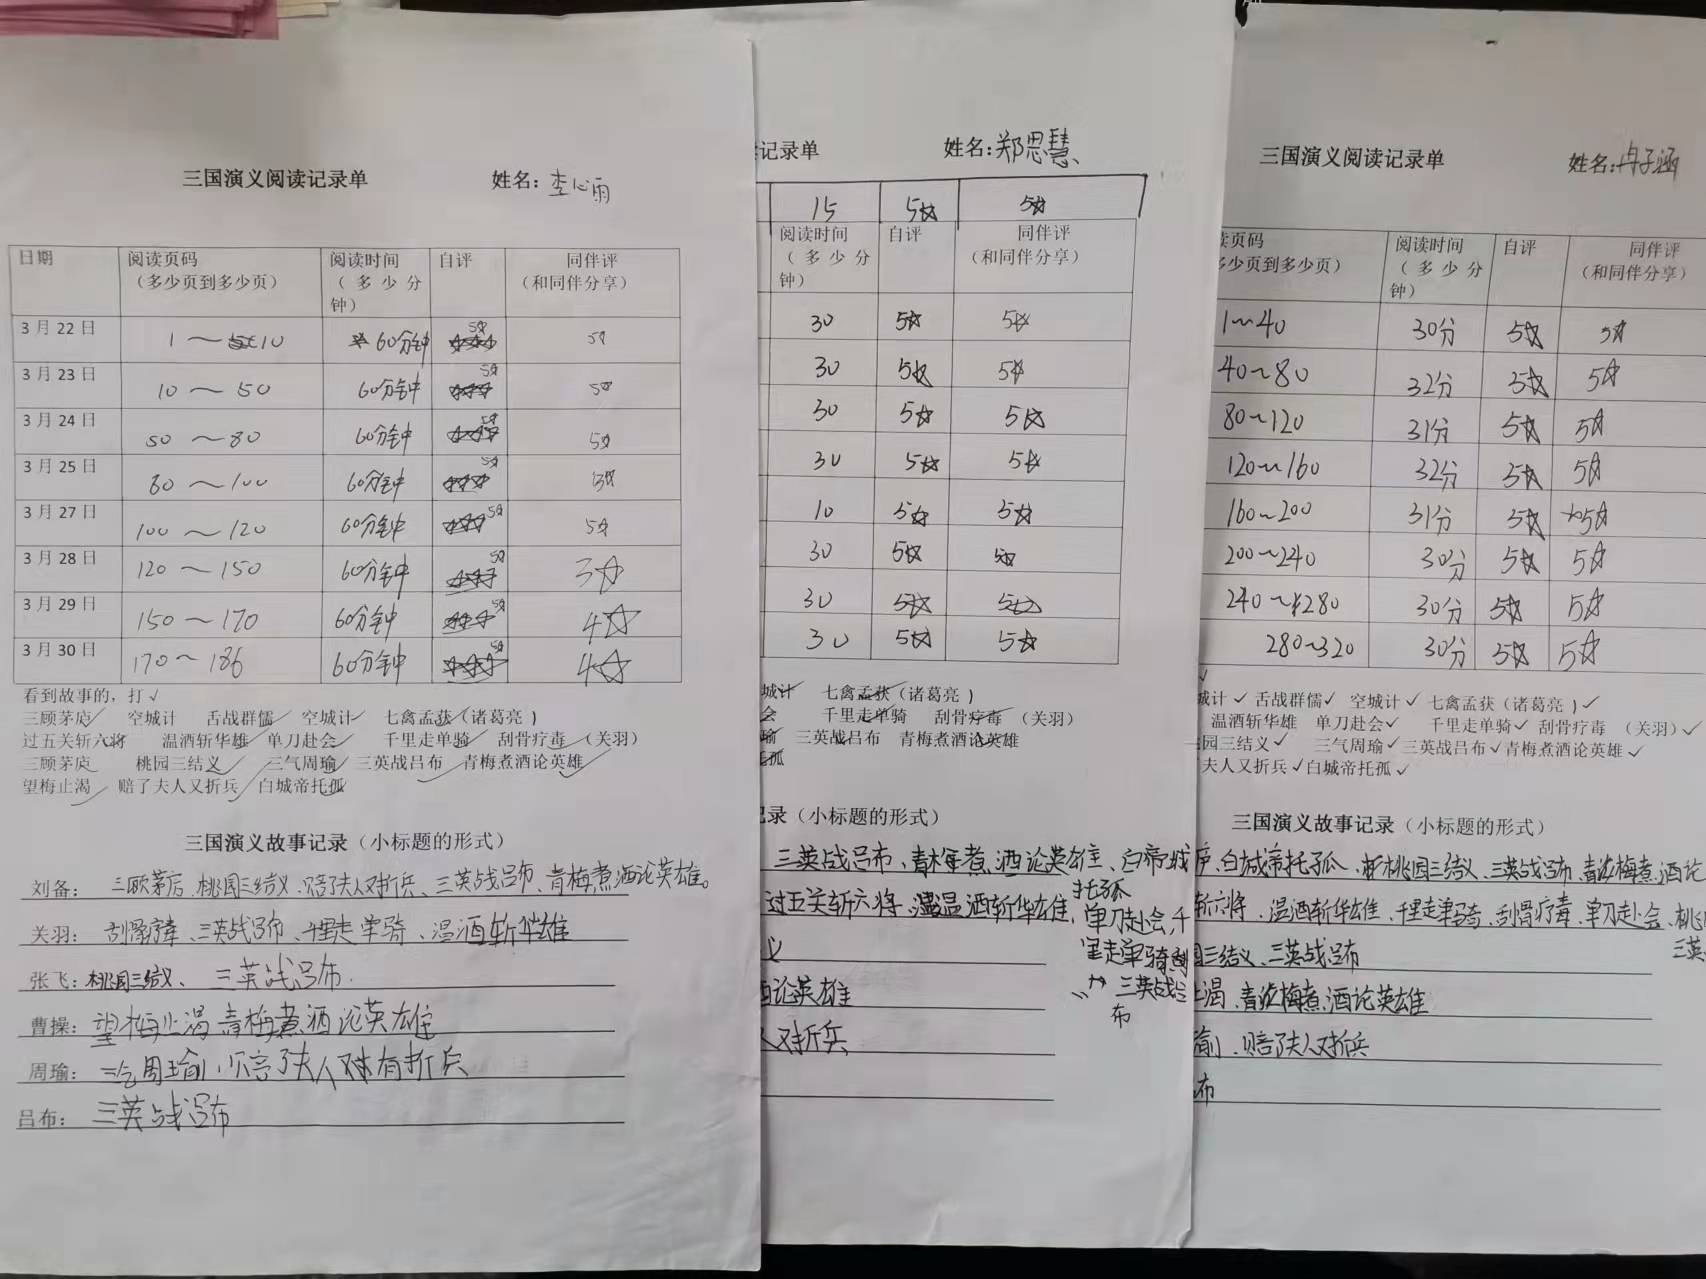 三国演义阅读记录单 姓名：李心雨
日期 阅读页码（多少页到多少页） 阅读时间（多少分钟） 自评 同伴评（和同伴分享）
3月22日 1～10 60分钟 5☆ 5☆
3月23日 10～50 60分钟 5☆ 5☆
3月24日 50～80 60分钟 5☆ 5☆
3月25日 80～100 60分钟 5☆ 5☆
3月27日 100～120 60分钟 5☆ 5☆
3月28日 120～150 60分钟 5☆ 3☆
3月29日 150～170 60分钟 5☆ 4☆
3月30日 170～186 60分钟 5☆ 4☆
看到故事的，打√
三顾茅庐 空城计 舌战群儒 空城计 七禽孟获（诸葛亮）
过五关斩六将 温酒斩华雄 单刀赴会 千里走单骑 刮骨疗毒（关羽）
三顾茅庐 桃园三结义 三气周瑜 三英战吕布 青梅煮酒论英雄
望梅止渴 赔了夫人又折兵 白城帝托孤
三国演义故事记录（小标题的形式）
刘备：三顾茅庐、桃园三结义、赔了夫人又折兵、三英战吕布、青梅煮酒论英雄。
关羽：刮骨疗毒、三英战吕布、千里走单骑、温酒斩华雄
张飞：桃园三结义、三英战吕布.
曹操：望梅止渴 青梅煮酒论英雄
周瑜：三气周瑜、赔了夫人又有折兵
吕布：三英战吕布
记录单 姓名：郑思慧
15 5☆ 5☆
阅读时间（多少分钟） 自评 同伴评（和同伴分享）
30 5☆ 5☆
30 5☆ 5☆
30 5☆ 5☆
30 5☆ 5☆
10 5☆ 5☆
30 5☆ 5☆
30 5☆ 5☆
30 5☆ 5☆
城计 七禽孟获（诸葛亮）
会 千里走单骑 刮骨疗毒（关羽）
瑜 三英战吕布 青梅煮酒论英雄
托孤
记录（小标题的形式）
三英战吕布、青梅煮酒论英雄、白帝城
托孤
过五关斩六将、温酒斩华雄、单刀赴会，千
里走单骑
义 三英战吕
布
酒论英雄
人又折兵
三国演义阅读记录单 姓名：冉子涵
读页码 多少页到多少页） 阅读时间（多少分钟） 自评 同伴评（和同伴分享）
1～40 30分 5☆ 5☆
40～80 32分 5☆ 5☆
80～120 31分 5☆ 5☆
120～160 32分 5☆ 5☆
160～200 31分 5☆ 5☆
200～240 30分 5☆ 5☆
240～280 30分 5☆ 5☆
280～320 30分 5☆ 5☆
城计√ 舌战群儒√ 空城计√ 七禽孟获（诸葛亮）√
温酒斩华雄 单刀赴会√ 千里走单骑√ 刮骨疗毒（关羽）√
桃园三结义√ 三气周瑜√ 三英战吕布√ 青梅煮酒论英雄√
夫人又折兵√ 白城帝托孤√
三国演义故事记录（小标题的形式）
庐、白城帝托孤、桃园三结义、三英战吕布、青梅煮酒论
斩六将、温酒斩华雄、千里走单骑、刮骨疗毒、单刀赴会、桃
三英
园三结义、三英战吕布
止渴、青梅煮酒论英雄
瑜、赔了夫人又折兵
布